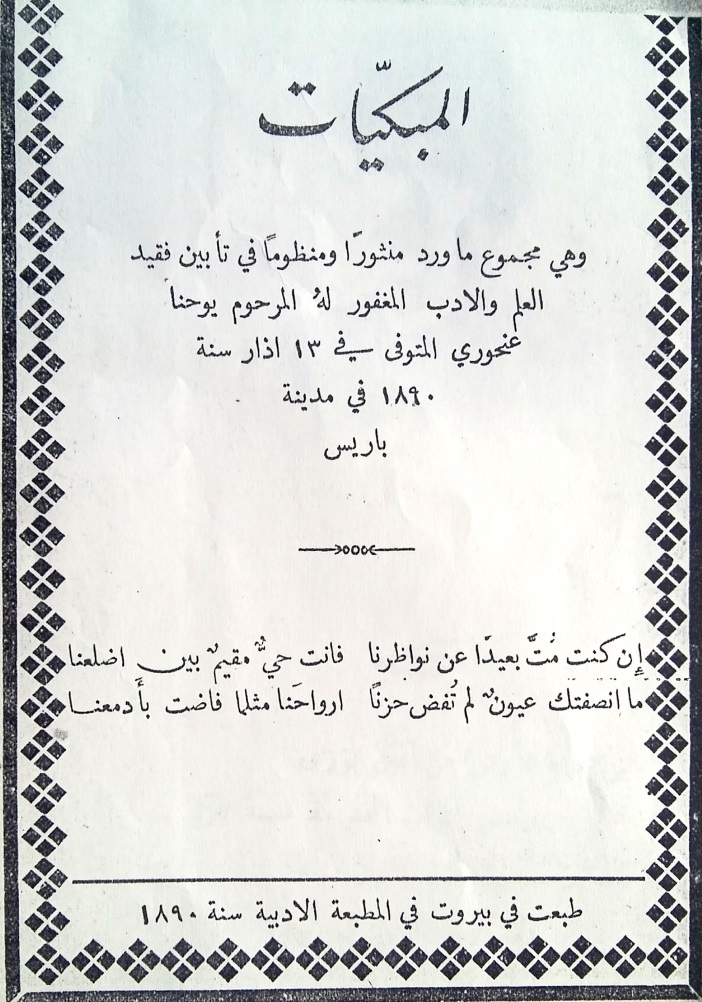 المبكيّات
وهي مجموع ما ورد منثورًا ومنظومًا في تأبين فقيد
العلم والادب المغفور لهُ المرحوم يوحنا
عنحوري المتوفى في ١٣ اذار سنة
١٨٩٠ في مدينة
باريس
إِن كنت مُتَّ بعيدًا عن نواظرنا فانت حيٌّ مقيمٌ بين اضلعنا
ما انصفتك عيونٌ لم تُفض حزنًا ارواحَنا مثلما فاضت بأَدمعنا
طبعت في بيروت في المطبعة الادبية سنة ١٨٩٠